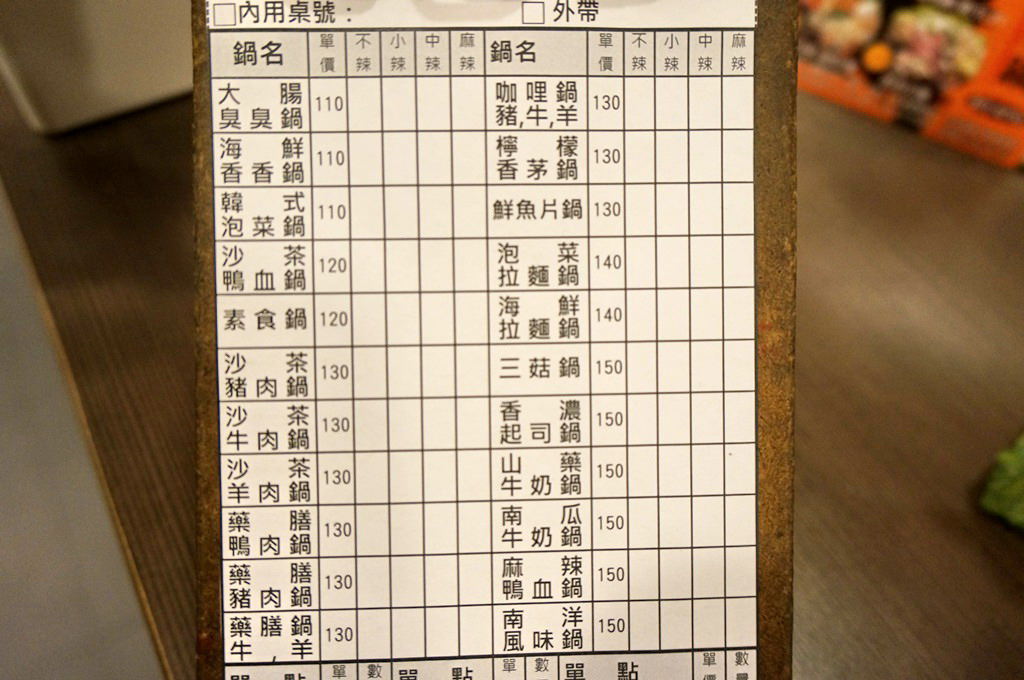 □內用桌號： □外帶
鍋名 單價 不辣 小辣 中辣 麻辣 鍋名 單價 不辣 小辣 中辣 麻辣
大腸臭臭鍋 110 咖哩鍋豬,牛,羊 130
海鮮香香鍋 110 檸檬香茅鍋 130
韓式泡菜鍋 110 鮮魚片鍋 130
沙茶鴨血鍋 120 泡菜拉麵鍋 140
素食鍋 120 海鮮拉麵鍋 140
沙茶豬肉鍋 130 三菇鍋 150
沙茶牛肉鍋 130 香濃起司鍋 150
沙茶羊肉鍋 130 山藥牛奶鍋 150
藥膳鴨肉鍋 130 南瓜牛奶鍋 150
藥膳豬肉鍋 130 麻辣鴨血鍋 150
藥膳鍋牛,羊 130 南洋風味鍋 150
單點 單 數 單點 單 數 單點 單價 數量